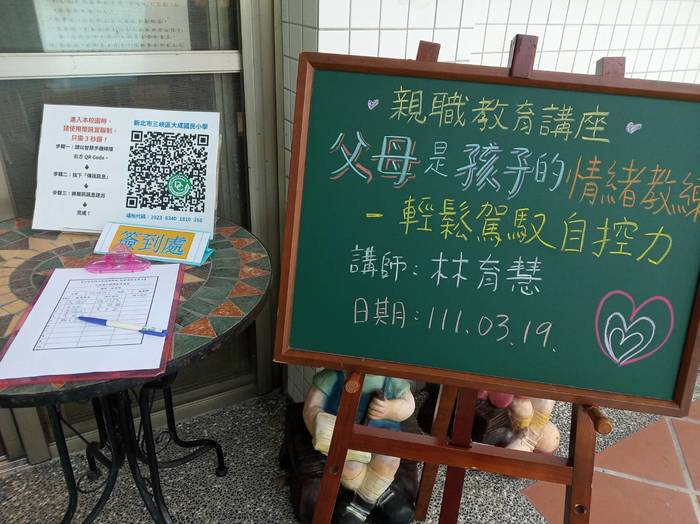 進入本校園時，
請使用簡訊實聯制，
只需 3 秒鐘！
步驟一：請以智慧手機掃描
右方 QR Code。
步驟二：按下「傳送訊息」
步驟三：將簡訊訊息送出
完成！
新北市三峽區大成國民小學
場所代碼：1023 6340 1810 258
簽到處
親職教育講座
父母是孩子的情緒教練
－輕鬆駕馭自控力
講師：林育慧
日期：111.03.19.